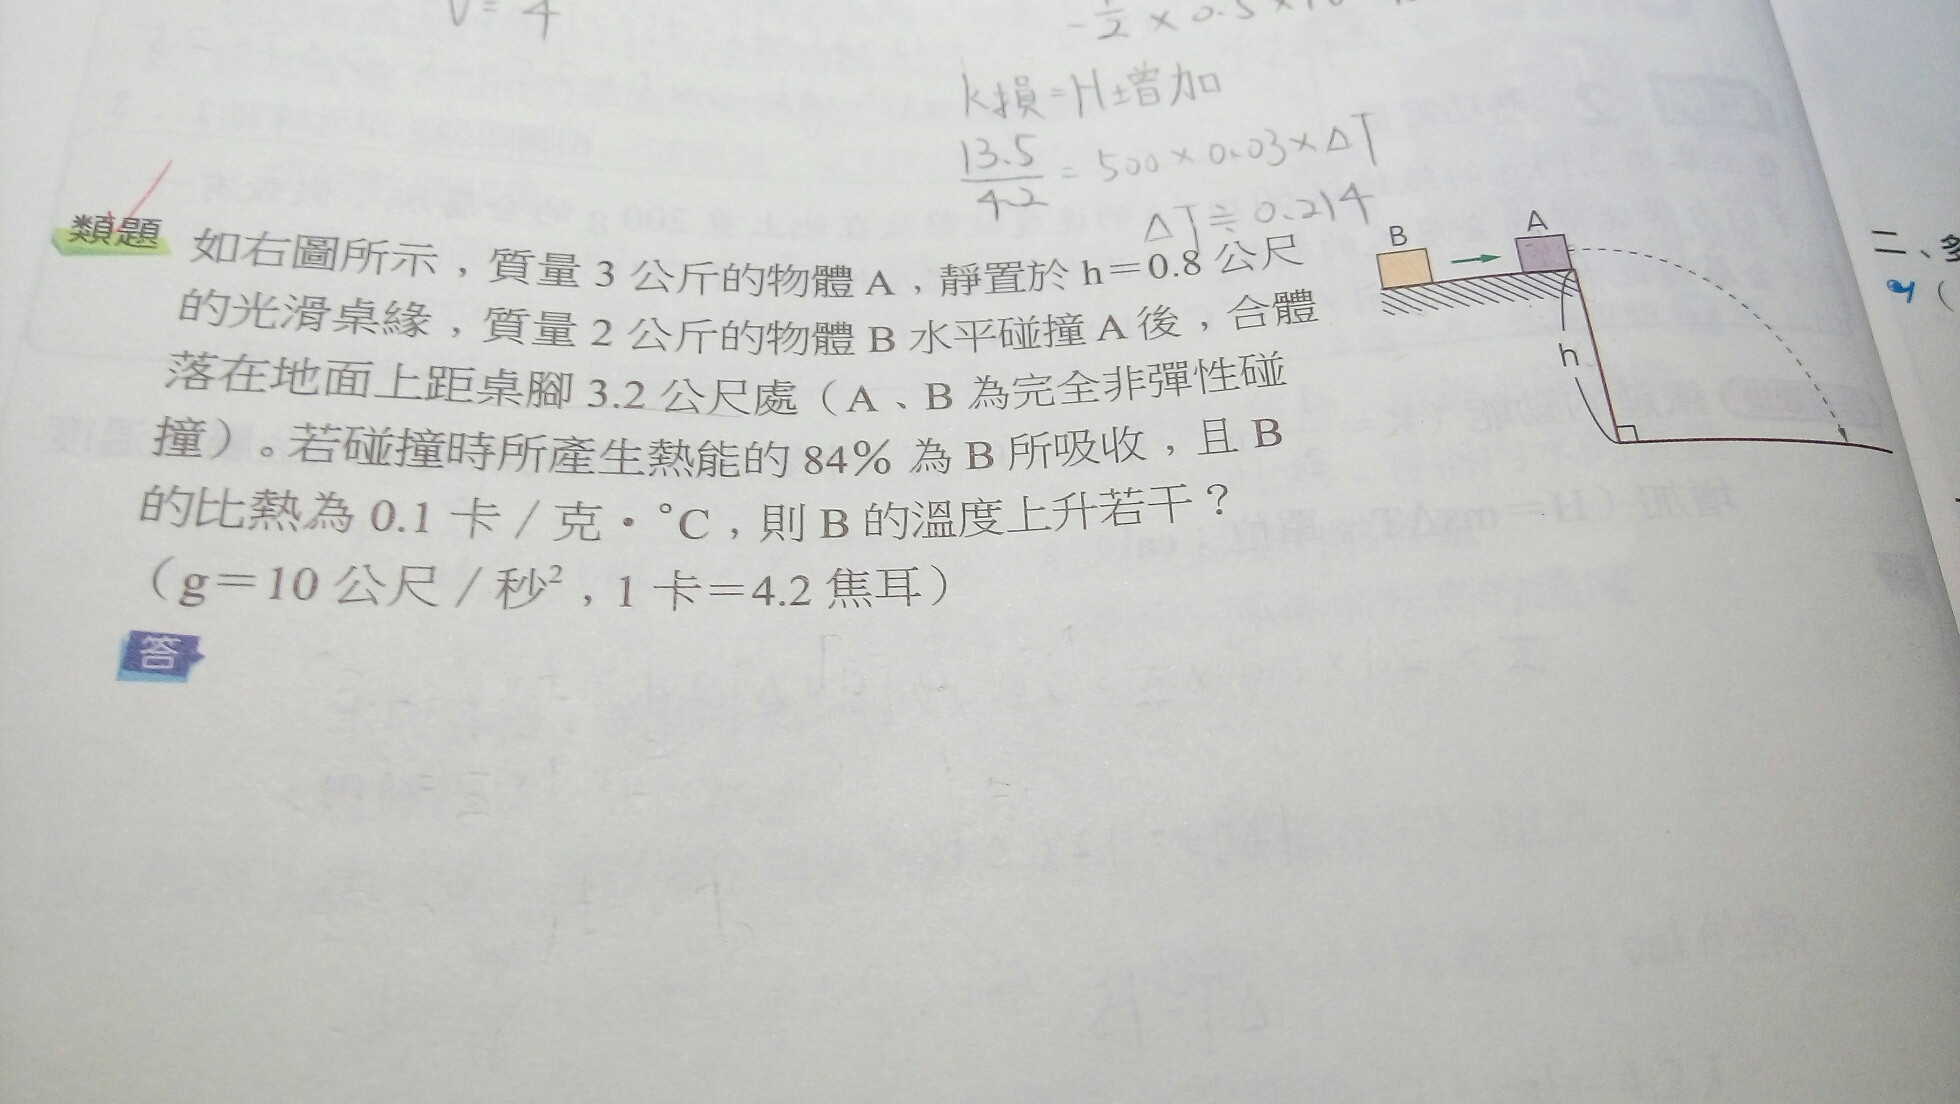 V = 4
- 1/2 × 0.5 ×
k損 = H增加
13.5/4.2 = 500 × 0.03 × ΔT
ΔT ≒ 0.214
類題 如右圖所示，質量 3 公斤的物體 A，靜置於 h＝0.8 公尺
的光滑桌緣，質量 2 公斤的物體 B 水平碰撞 A 後，合體
落在地面上距桌腳 3.2 公尺處（A、B 為完全非彈性碰
撞）。若碰撞時所產生熱能的 84% 為 B 所吸收，且 B
的比熱為 0.1 卡／克・°C，則 B 的溫度上升若干？
（g＝10 公尺／秒²，1 卡＝4.2 焦耳）
答
B
A
h
二、多